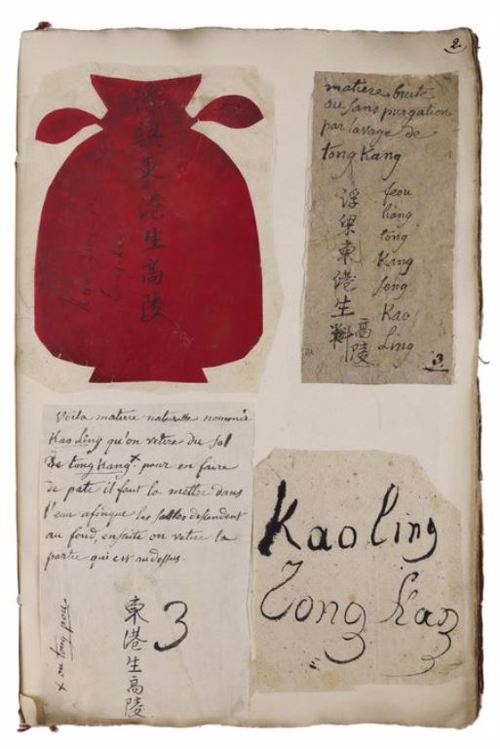 2.
鎮東港生高陵
matiere brute
ou sans purgation
par lavage de
tong Kang
浮梁東港生料高陵
feou
liang
tong
Kang
seng
Kao
Ling
3.
Voila matiere naturelle nommée
Kao Ling qu'on retire du sol
de tong Kang x pour en faire
de pate il faut la mettre dans
l'eau afinque les sables descendent
au fond, ensuite on retire la
partie qui est au dessus.
x ou tong
東港生高陵
3
Kaoling
Tong Kang